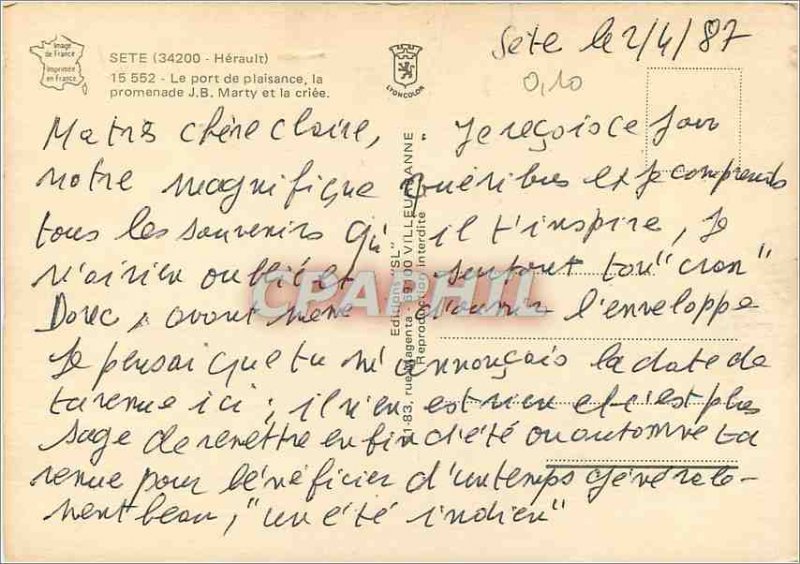 Image
de France
Imprimée
en France
SETE (34200 - Hérault)
15 552 - Le port de plaisance, la
promenade J.B. Marty et la criée.
LYONCOLOR
Sète le 2/4/87
0,10
Ma très chère Claire, Je reçois ce jour
notre magnifique Quéribus et je comprends
tous les souvenirs qu'il t'inspire, Je
n'ai rien oublié et surtout ton "cran"
Donc, avant même d'ouvrir l'enveloppe
Je pensai que tu m'annonçais la date de
ta venue ici ; il n'en est rien et c'est plus
sage de remettre en fin d'été ou automne ta
venue pour bénéficier d'un temps générale-
ment beau, "un été indien"
Editions "SL"
1-83, rue Magenta - 69100 VILLEURBANNE
Reproduction interdite
CPAPHIL